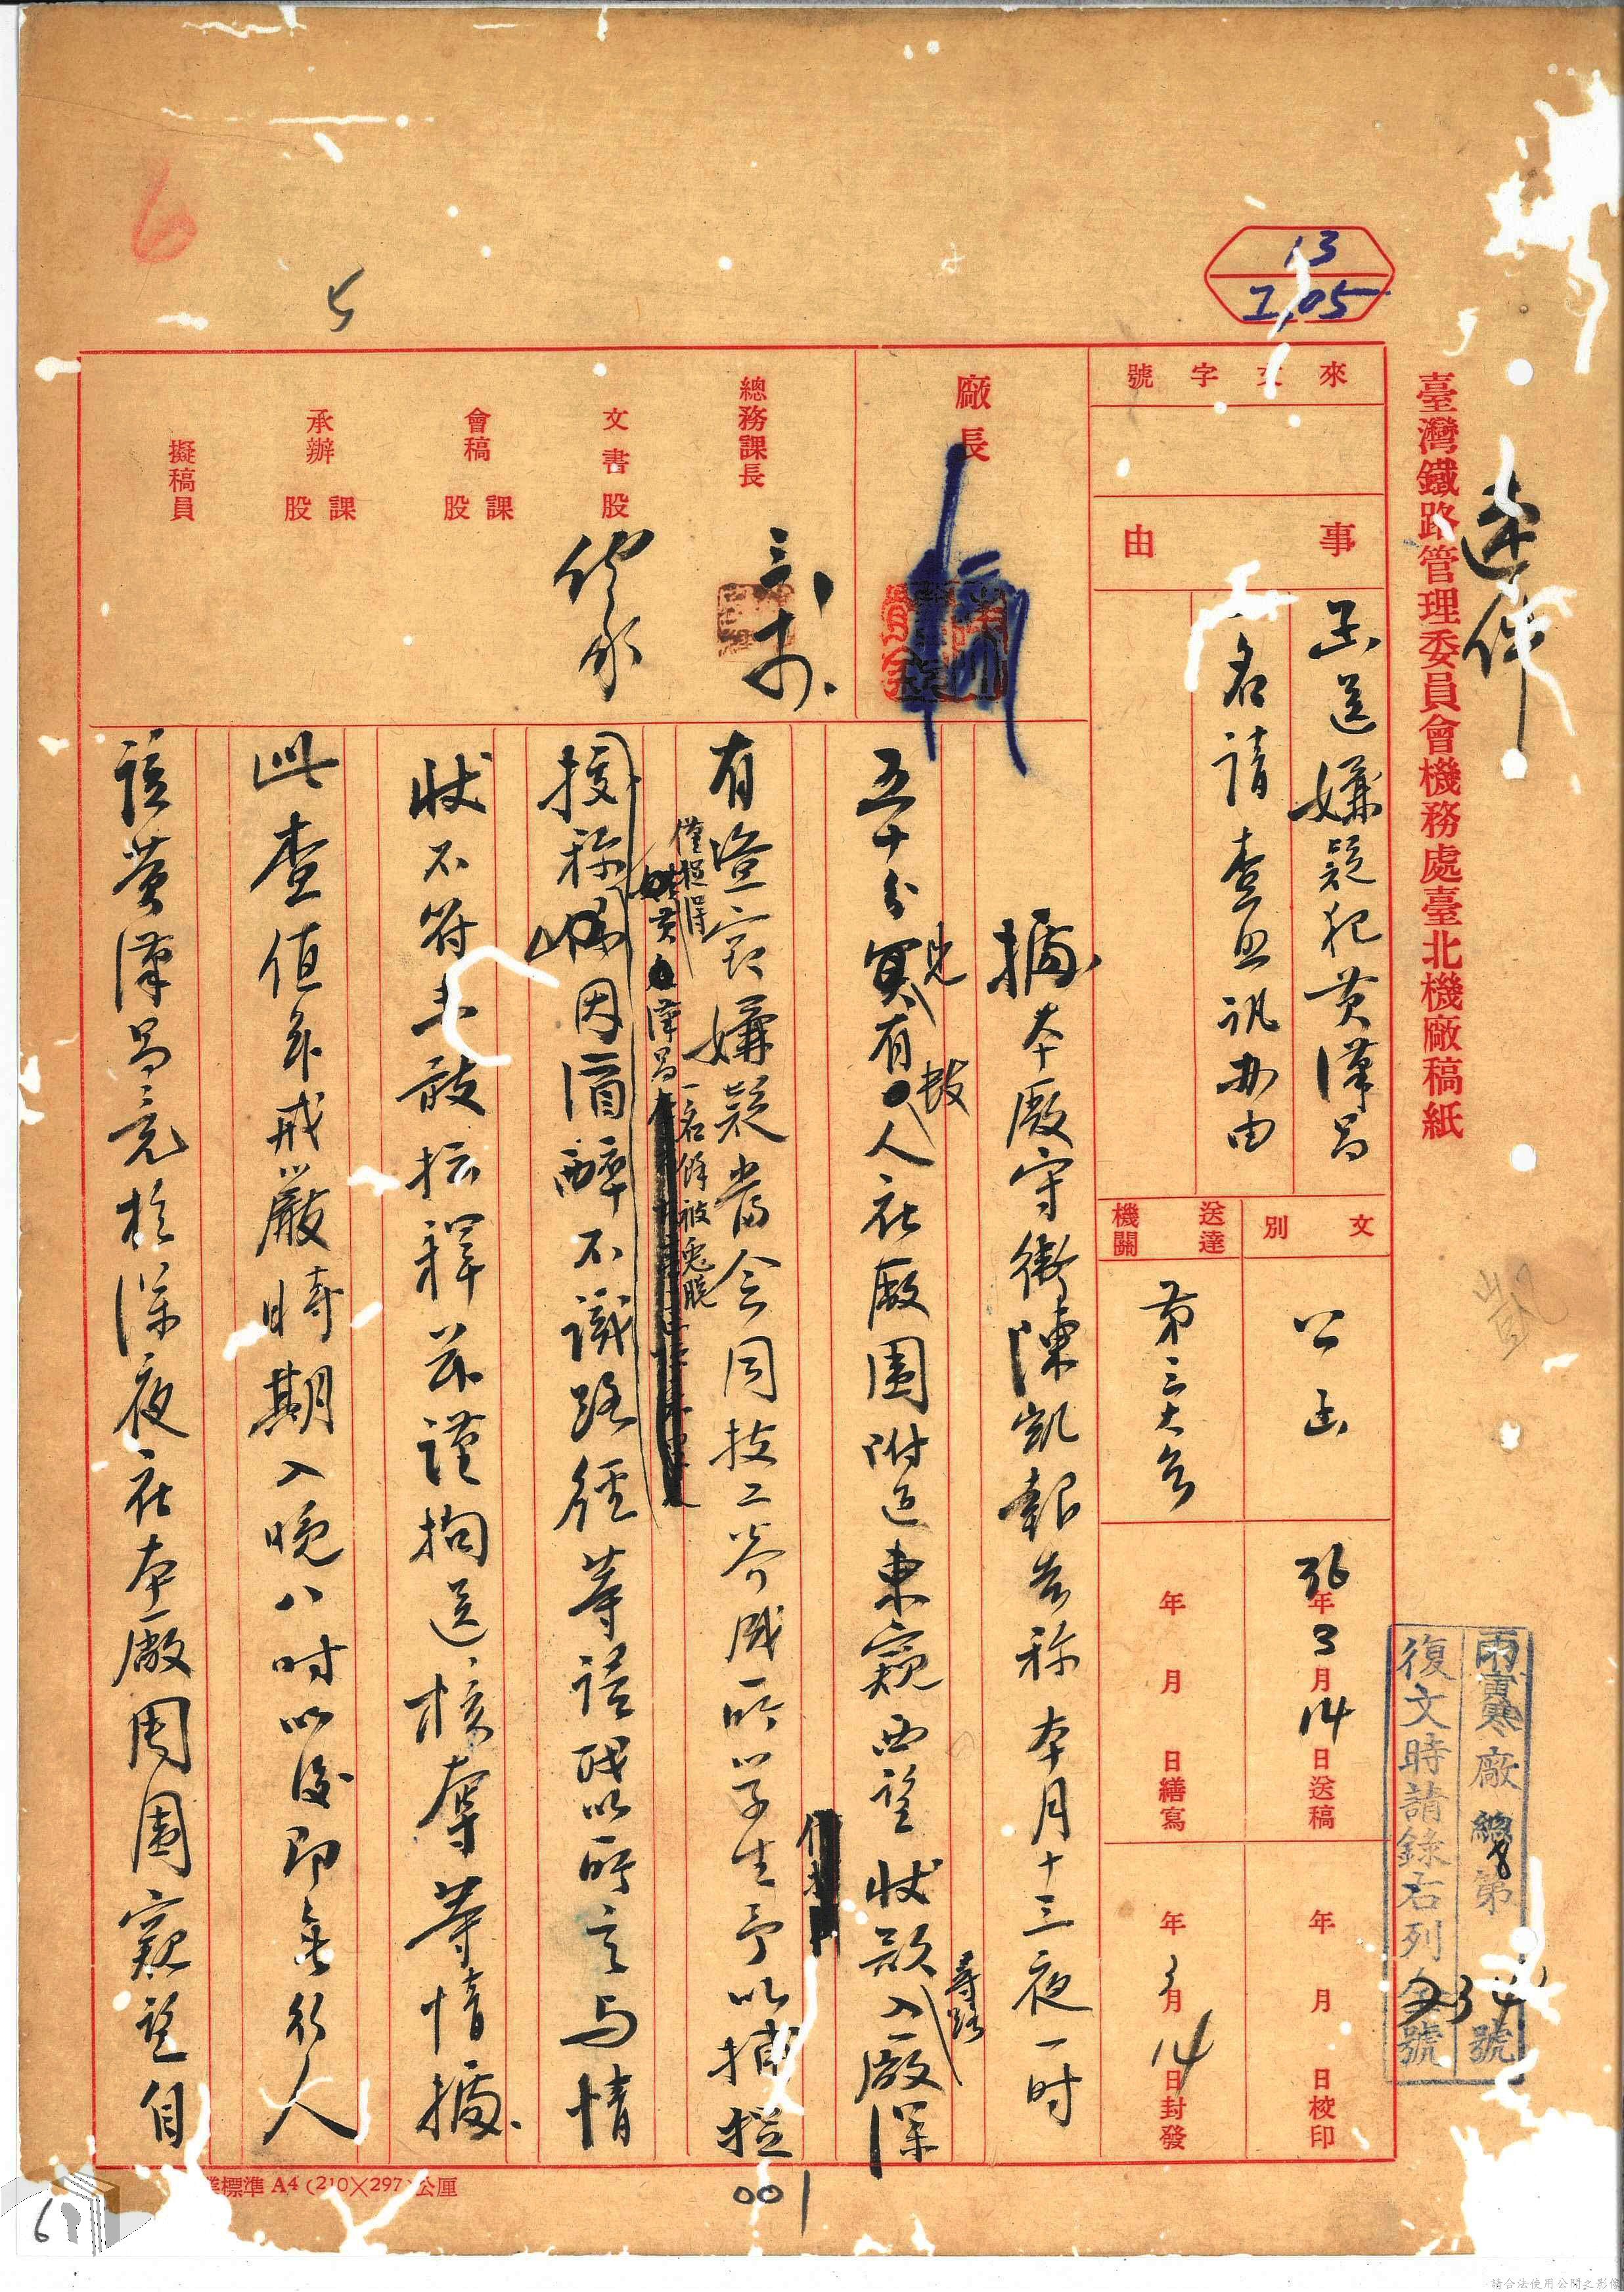 速件
臺灣鐵路管理委員會機務處臺北機廠稿紙
13
1.05
6
5
來文字號
事由
函送嫌疑犯黃漢昌
一名請查照訊办由
文別
公函
送達機關
第三大隊
36年3月14日送稿
年月日繕寫
年月日校印
年3月14日封發
廠長
總務課長
文書股
會稿課股
承辦課股
擬稿員
廠總第號
復文時請錄右列文號
據本廠守衛陳凱報告称本月十三夜一时
五十分見有數人在廠圍附近東窺西望狀欲尋路入廠深
有盜竊嫌疑當会同技工養成所学生予以捕捉
僅捉得黃漢昌一名餘被兔脫
據称因酒醉不識路徑等語職以所言与情
狀不符未敢擅釋茲謹拘送核奪等情據
此查值茲戒嚴時期入晚八时以後即無行人
該黃漢昌竟於深夜在本廠周圍窺望自
標準A4(210×297)公厘
001
6
請合法使用公開之影像